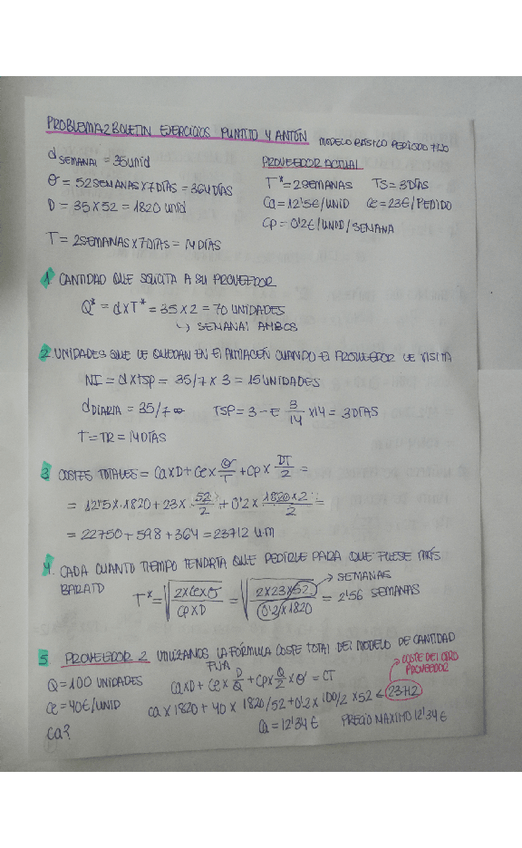 PROBLEMA 2 BOLETIN EJERCICIOS PUNTITO Y ANTÓN MODELO BÁSICO PERIODO FIJO
d SEMANAL = 35 unid
PROVEEDOR ACTUAL
Θ = 52 SEMANAS X 7 DÍAS = 364 DÍAS
T* = 2 SEMANAS TS = 3 DÍAS
D = 35 X 52 = 1820 unid
Ca = 12'5€/UNID Ce = 23€/PEDIDO
Cp = 0'2€/UNID/SEMANA
T = 2 SEMANAS X 7 DÍAS = 14 DÍAS
1 CANTIDAD QUE SOLICITA A SU PROVEEDOR
Q* = d X T* = 35 X 2 = 70 UNIDADES
↳ SEMANAL AMBOS
2 UNIDADES QUE LE QUEDAN EN EL ALMACÉN CUANDO EL PROVEEDOR LE VISITA
NI = d X tsp = 35/7 X 3 = 15 UNIDADES
d DIARIA = 35/7 TSP = 3 - E 3/14 X 14 = 3 DÍAS
T = TR = 14 DÍAS
3 COSTES TOTALES = Ca X D + Ce X Θ/T + Cp X DT/2 =
= 12'5 X 1820 + 23 X 52/2 + 0'2 X 1820 X 2/2 =
= 22750 + 598 + 364 = 23712 u.m
4. CADA CUANTO TIEMPO TENDRÍA QUE PEDIRLE PARA QUE FUESE MÁS
BARATO
T* = √2 X Ce X Θ / Cp X D = √2 X 23 X 52 / 0'2 X 1820 = 2'56 SEMANAS
→ SEMANAS
5 PROVEEDOR 2 UTILIZAMOS LA FÓRMULA COSTE TOTAL DEL MODELO DE CANTIDAD
FIJA
COSTE DEL OTRO
PROVEEDOR
Q = 100 UNIDADES
Ca X D + Ce X D/Q + Cp X Q/2 X Θ = CT
Ce = 40€/UNID
Ca X 1820 + 40 X 1820/52 + 0'2 X 100/2 X 52 ≤ 23712
Ca?
Ca = 12'34€ PRECIO MAXIMO 12'34€